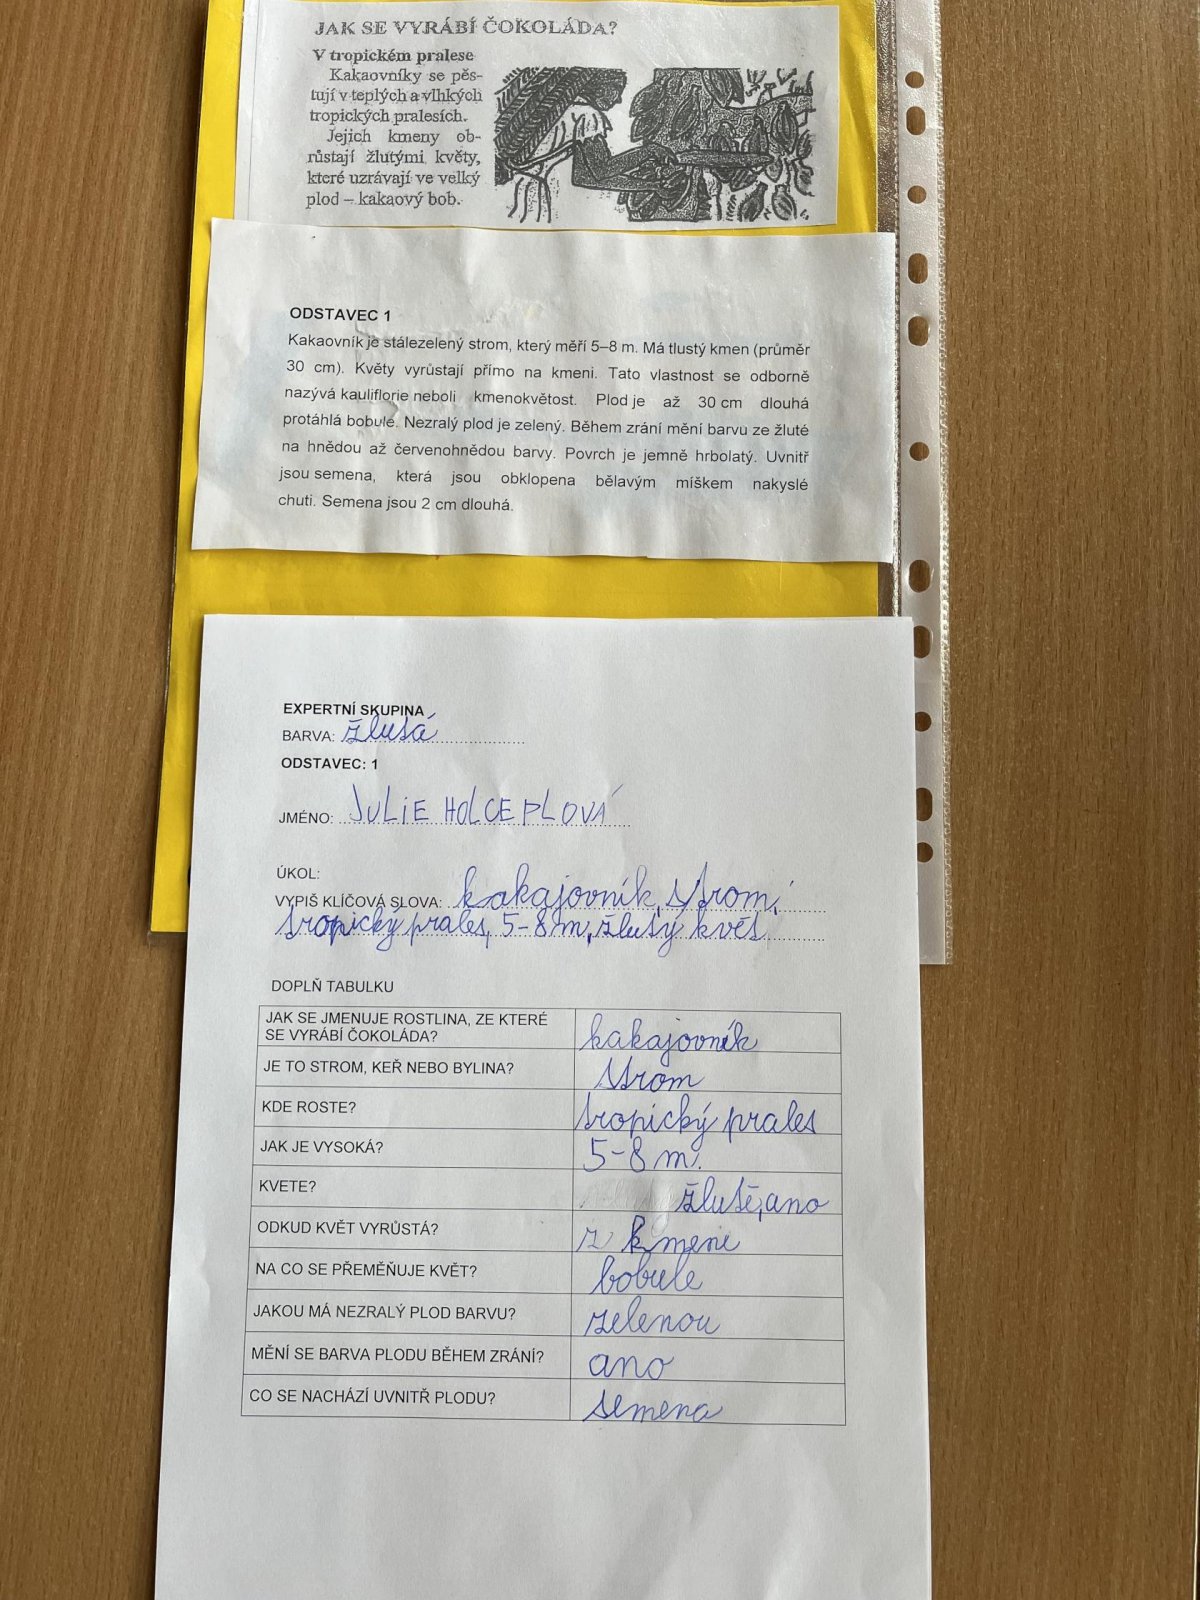 JAK SE VYRÁBÍ ČOKOLÁDA?
V tropickém pralese
Kakaovníky se pěs-
tují v teplých a vlhkých
tropických pralesích.
Jejich kmeny ob-
růstají žlutými květy,
které uzrávají ve velký
plod – kakaový bob.
ODSTAVEC 1
Kakaovník je stálezelený strom, který měří 5–8 m. Má tlustý kmen (průměr
30 cm). Květy vyrůstají přímo na kmeni. Tato vlastnost se odborně
nazývá kauliflorie neboli kmenokvětost. Plod je až 30 cm dlouhá
protáhlá bobule. Nezralý plod je zelený. Během zrání mění barvu ze žluté
na hnědou až červenohnědou barvy. Povrch je jemně hrbolatý. Uvnitř
jsou semena, která jsou obklopena bělavým míškem nakyslé
chuti. Semena jsou 2 cm dlouhá.
EXPERTNÍ SKUPINA
BARVA: žlutá
ODSTAVEC: 1
JMÉNO: JULIE HOLCEPLOVÁ
ÚKOL:
VYPIŠ KLÍČOVÁ SLOVA: kakajovník, strom,
tropický prales, 5-8 m, žlutý květ
DOPLŇ TABULKU
JAK SE JMENUJE ROSTLINA, ZE KTERÉ
SE VYRÁBÍ ČOKOLÁDA? kakajovník
JE TO STROM, KEŘ NEBO BYLINA? strom
KDE ROSTE? tropický prales
JAK JE VYSOKÁ? 5-8 m.
KVETE? žlutě, ano
ODKUD KVĚT VYRŮSTÁ? z kmene
NA CO SE PŘEMĚŇUJE KVĚT? bobule
JAKOU MÁ NEZRALÝ PLOD BARVU? zelenou
MĚNÍ SE BARVA PLODU BĚHEM ZRÁNÍ? ano
CO SE NACHÁZÍ UVNITŘ PLODU? semena